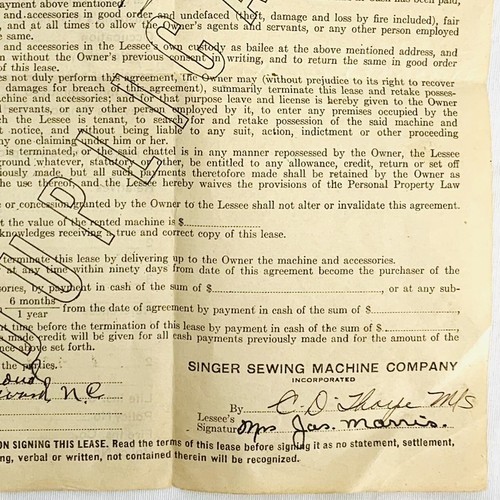 payment above mentioned.
and accessories in good order and undefaced (theft, damage and loss by fire included), fair
and at all times to allow the Owner's agents and servants, or any other person employed
same.
and accessories in the Lessee's own custody as bailee at the above mentioned address, and
without the Owner's previous consent in writing, and to return the same in good order
of this lease.
not duly perform this agreement, the Owner may (without prejudice to its right to recover
damages for breach of this agreement), summarily terminate this lease and retake posses-
machine and accessories; and for that purpose leave and license is hereby given to the Owner
servants, or any other person employed by it, to enter any premises occupied by the
the Lessee is tenant, to search for and retake possession of the said machine and
notice, and without being liable to any suit, action, indictment or other proceeding
any one claiming under him or her.
is terminated, or the said chattel is in any manner repossessed by the Owner, the Lessee
ground whatever, statutory or other, be entitled to any allowance, credit, return or set off
previously made, but all such payments theretofore made shall be retained by the Owner as
the use thereof, and the Lessee hereby waives the provisions of the Personal Property Law
or concession granted by the Owner to the Lessee shall not alter or invalidate this agreement.
the value of the rented machine is $
acknowledges receiving a true and correct copy of this lease.
terminate this lease by delivering up to the Owner the machine and accessories.
at any time within ninety days from date of this agreement become the purchaser of the
by payment in cash of the sum of $ , or at any sub-
6 months
1 year from the date of agreement by payment in cash of the sum of $
time before the termination of this lease by payment in cash of the sum of $
made credit will be given for all cash payments previously made and for the amount of the
above set forth.
the parties.
SINGER SEWING MACHINE COMPANY
INCORPORATED
N.C
By C. D. Thorpe M/S
Lessee's
Signature Mrs Jas. Morris.
ON SIGNING THIS LEASE. Read the terms of this lease before signing it as no statement, settlement,
verbal or written, not contained therein will be recognized.